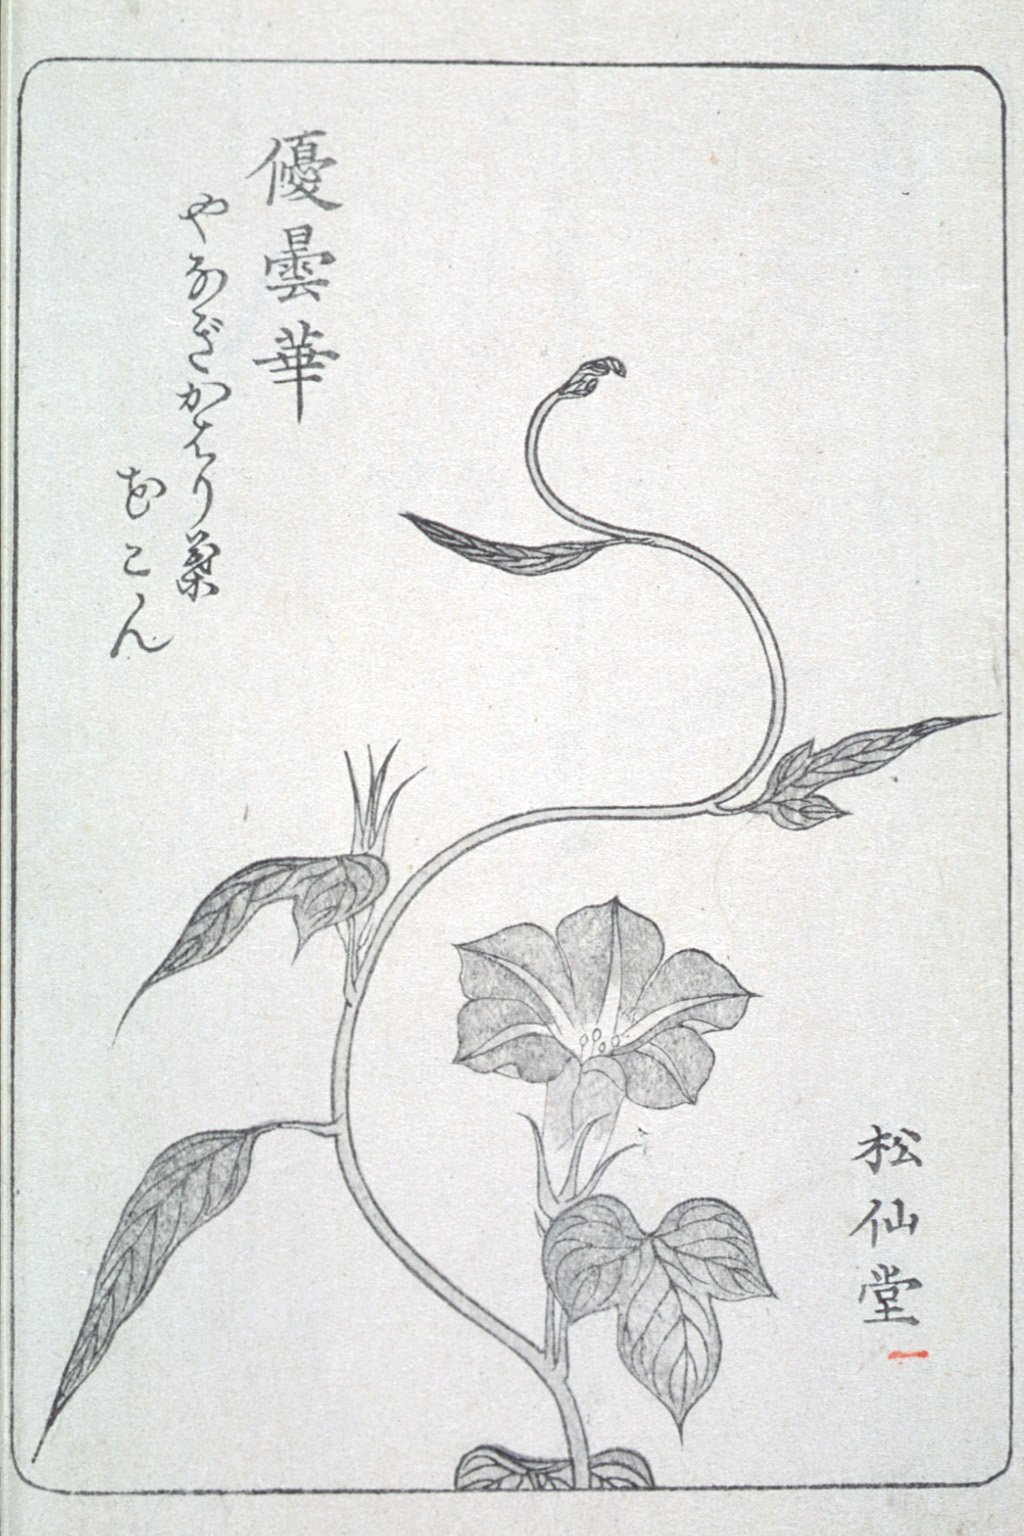 優曇華
やなぎかはり葉
こん
松仙堂